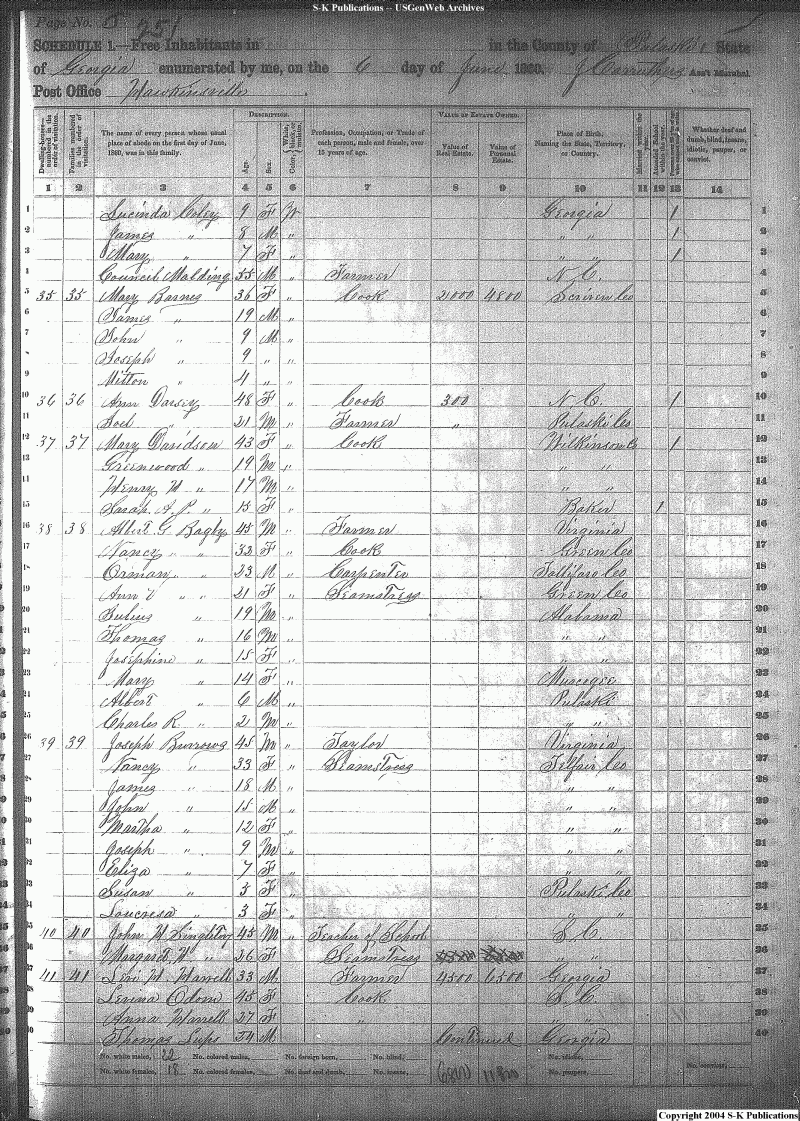 S-K Publications -- USGenWeb Archives
Page No. 5 251
SCHEDULE 1.—Free Inhabitants in in the County of Pulaski State
of Georgia enumerated by me, on the 6 day of June 1860. J Carruthers Ass't Marshal
Post Office Hawkinsville
Dwelling-houses numbered in the order of visitation.
Families numbered in the order of visitation.
The name of every person whose usual place of abode on the first day of June, 1860, was in this family.
DESCRIPTION.
Age.
Sex.
Color, White, black, or mulatto.
Profession, Occupation, or Trade of each person, male and female, over 15 years of age.
VALUE OF ESTATE OWNED.
Value of Real Estate.
Value of Personal Estate.
Place of Birth, Naming the State, Territory, or Country.
Married within the year.
Attended School within the year.
Whether deaf and dumb, blind, insane, idiotic, pauper, or convict.
1 2 3 4 5 6 7 8 9 10 11 12 13 14
1 Lucinda Coley 9 F W Georgia 1 1
2 James " 8 M " " " 1 2
3 Mary " 7 F " " " 1 3
4 Council Malding 55 M " Farmer N. C. 4
5 35 35 Mary Barnes 36 F " Cook 2000 4800 Scriven Co 5
6 James " 19 M " 6
7 John " 9 M " 7
8 Joseph " 9 " " 8
9 Milton " 4 " " 9
10 36 36 Ann Darsey 48 F " Cook 300 N. C. 1 10
11 Joel " 21 M " Farmer " Pulaski Co 11
12 37 37 Mary Davidson 43 F " Cook Wilkinson Co 1 12
13 Greenwood " 19 M " " " 13
14 Henry H " 17 M " " " 14
15 Sarah A. P. " 15 F " Baker 1 15
16 38 38 Albert G. Bagby 45 M " Farmer Virginia 16
17 Nancy " " 32 F " Cook Green Co 17
18 Orman " " 23 M " Carpenter Tallifaro Co 18
19 Ann " " 21 F " Seamstress Green Co 19
20 Julius " 19 M " Alabama 20
21 Thomas " 16 M " " " 21
22 Josephine " 15 F " " " 22
23 Mary " 14 F " Muscogee 23
24 Albert " 6 M " Pulaski 24
25 Charles R. " 2 M " " " 25
26 39 39 Joseph Burrows 45 M " Taylor Virginia 26
27 Nancy " 33 F " Seamstress Telfair Co 27
28 James " 18 M " " " 28
29 John " 15 M " " " 29
30 Martha " 12 F " " " 30
31 Joseph " 9 M " " " 31
32 Eliza " 7 F " " " 32
33 Susan " 5 F " Pulaski Co 33
34 Loucresa " 3 F " " " 34
35 40 40 John W Singletary 45 M " Teacher of School S. C. 35
36 Margaret " 26 F " Seamstress 36
37 41 41 Levi W Harrell 33 M Farmer 4500 6500 Georgia 37
38 Lenina Odom 45 F Cook S. C. 38
39 Anna Harrell 27 F " " " 39
40 Thomas 54 M Continued Georgia 40
No. white males, 22 No. colored males, No. foreign born, No. blind, No. idiotic,
No. white females, 18 No. colored females, No. deaf and dumb, No. insane, 6800 11300 No. paupers, No. convicts,
Copyright 2004 S-K Publications